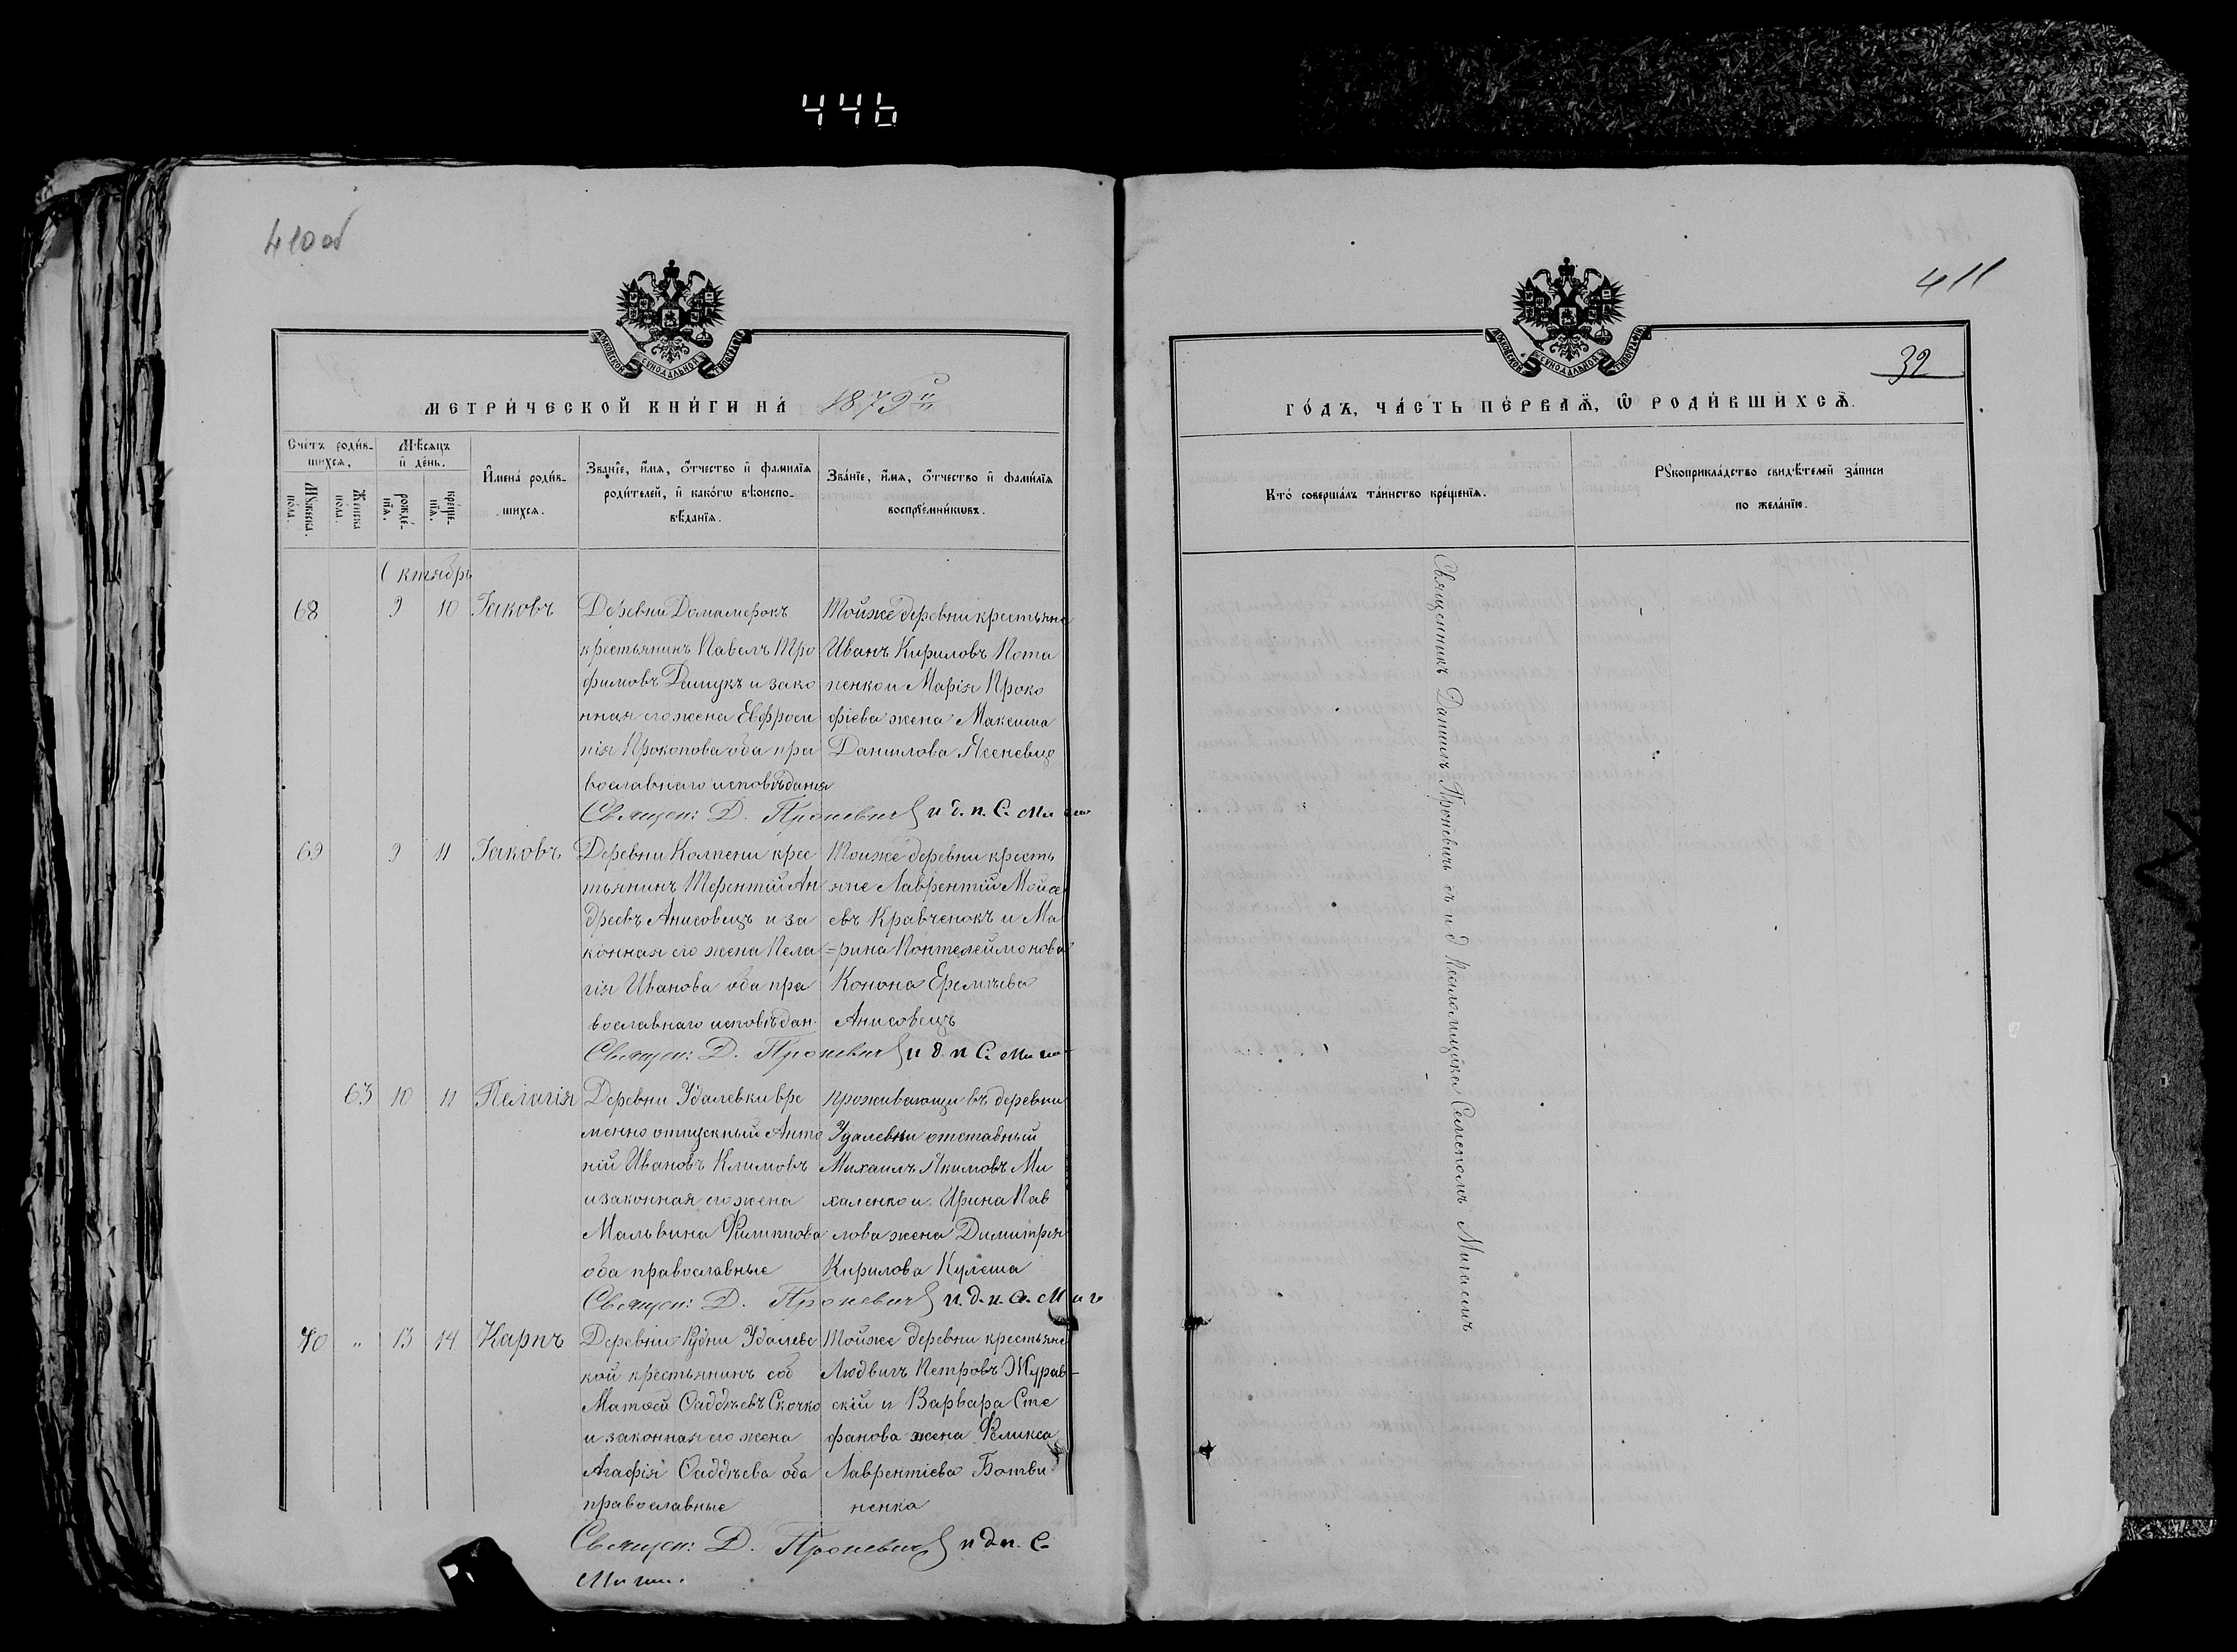 446
410об
МОСКОВСКОЙ СУНОДАЛЬНОЙ ТИПОГРАФІИ
МЕТРИ́ЧЕСКОЙ КНИ́ГИ НА́ 1879й
Сче́тъ роди́в-
шихсѧ,
Мѣ́сяцъ
и҆ де́нь.
Мꙋ́жеска по́ла.
Же́нска по́ла.
рожде́-нїѧ.
креще́-нїѧ.
И҆мена̀ роди́в-
шихсѧ.
Зва́нїе, и҆́мѧ, ѻ҆́тчество и҆ фами́лїѧ
роди́телей, и҆ како́гѡ вѣроиспо-
вѣ́данїѧ.
Зва́нїе, и҆́мѧ, ѻ҆́тчество и҆ фами́лїѧ
воспрїе́мникѡвъ.
Октябрь
68 9 10 Іаковъ
Деревни Домамерокъ
крестьянинъ Павелъ Тро
фимовъ Демукъ и зако
нная его жена Евфроси
нія Прокопова оба пра
вославнаго исповѣданія
Тойже деревни крестьяне
Иванъ Кириловъ Пота
пенко и Марія Проко
фіева жена Максима
Данилова Ясеневца
Священ: Д. Проневичъ и д. п. С. Миг
69 9 11 Іаковъ
Деревни Колпени крес
тьянинъ Терентій Ан
дреевъ Анисовецъ и за
конная его жена Пела
гія Иванова оба пра
вославнаго исповѣдан.
Тойже деревни кресть
яне Лаврентій Мойсе
евъ Кравченокъ и Ма
=рина Понтелеймонова
Конона Еремѣева
Анисовецъ
Священ: Д. Проневичъ и д. п С. Миг
63 10 11 Пелагія
Деревни Удалевки вре
менно отпускный Анто
ній Ивановъ Климовъ
и законная его жена
Мальвина Филиппова
оба православные
Проживающи въ деревни
Удалевки отставный
Михаилъ Якимовъ Ми
халенко и Ирина Пав
лова жена Димитрія
Кирилова Кулеша
Священ: Д. Проневичъ и. д. п. С. Миг
70 " 13 14 Карпъ
Деревни Рудни Удалевс
кой крестьянинъ соб
Матѳей Ѳаддѣевъ Скочко
и законная его жена
Агафія Ѳаддѣева оба
православные
Тойже деревни крестьяне
Людвигъ Петровъ Журав-
скій и Варвара Сте
фанова жена Феликса
Лаврентіева Ботви
ненка
Священ: Д. Проневичъ и д п. С.
411
МОСКОВСКОЙ СУНОДАЛЬНОЙ ТИПОГРАФІИ
32
ГО́ДЪ, ЧА́СТЬ ПЕ́РВАѦ, Ѡ҆ РОДИ́ВШИХСѦ.
Кто̀ соверша́лъ та́инство креще́нїѧ.
Рꙋкоприкла́дство свидѣ́телей за́писи
по жела́нїю.
Священникъ Даниилъ Проневичъ съ и д Псаломщика Семеномъ Мигаемъ